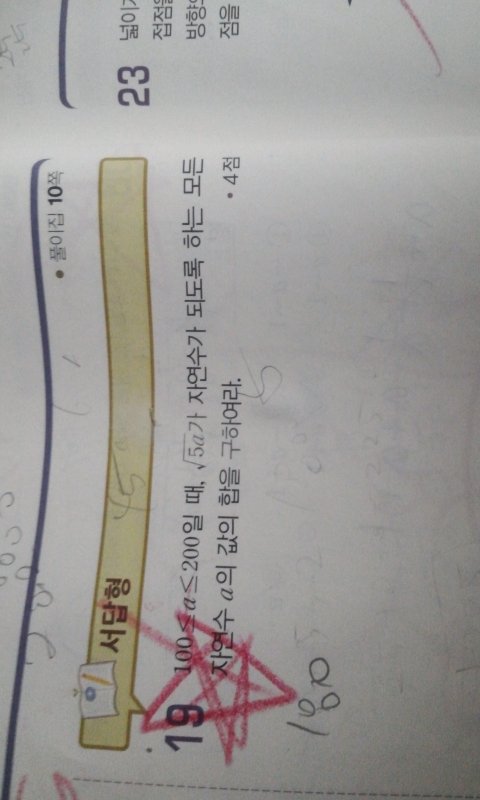 • 풀이집 10쪽
서답형
19 100≤a≤200일 때, √5a가 자연수가 되도록 하는 모든
자연수 a의 값의 합을 구하여라. • 4점
180
23
접점을
점을